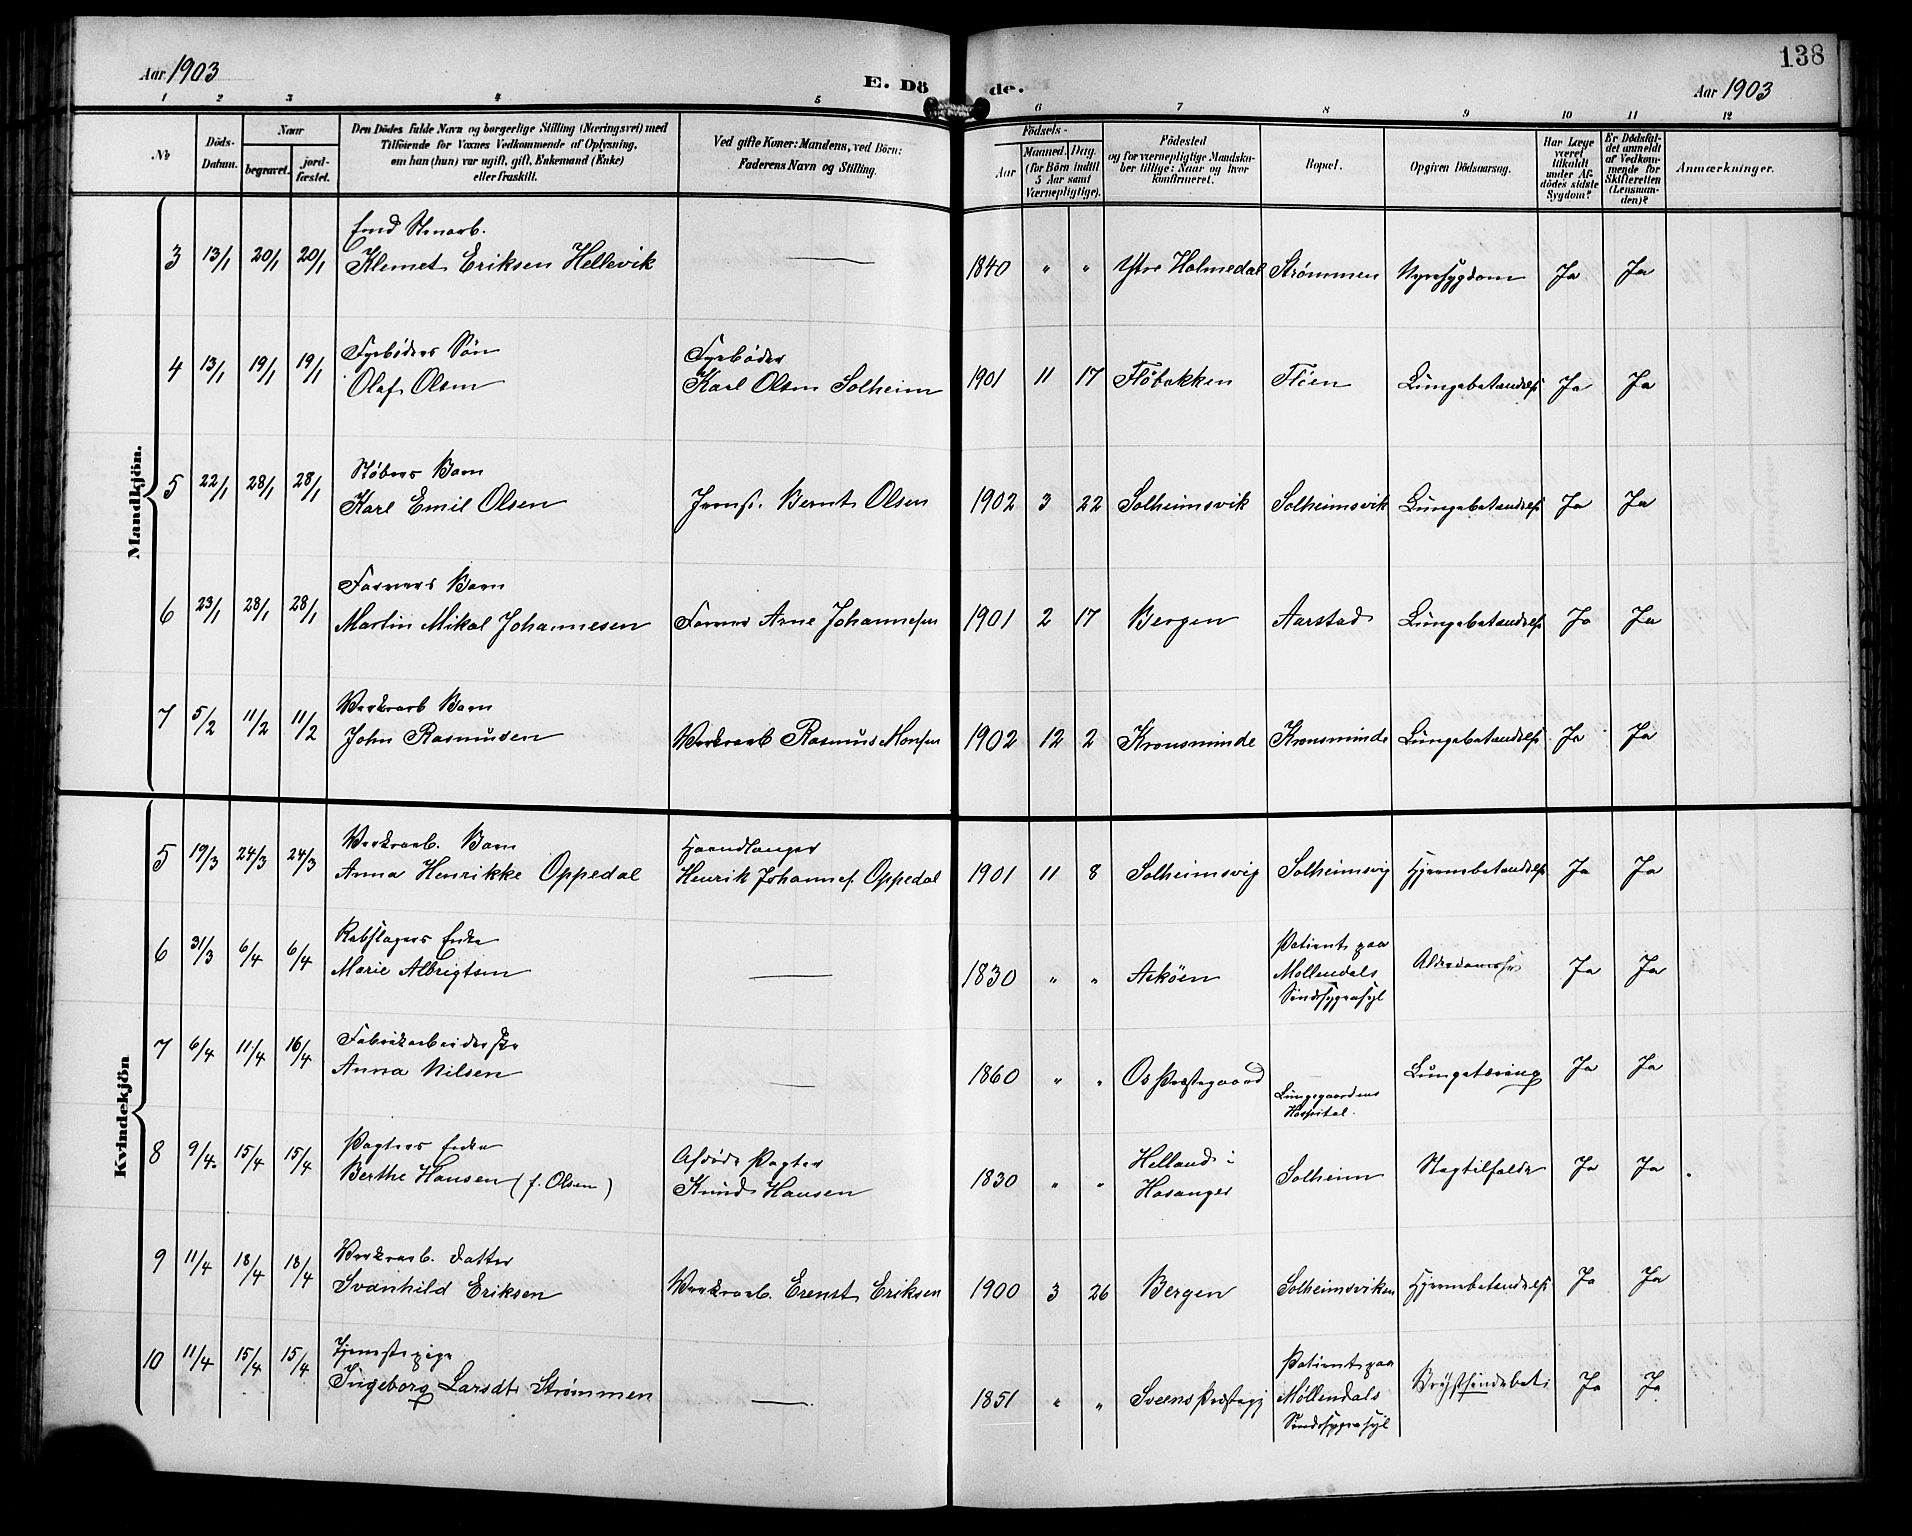 Aar 1903
E. Dö de.
138
Aar 1903
1 2 3 4 5 6 7 8 9 10 11 12
No
Döds-Datum.
Naar
begravet.
jord-fæstet.
Den Dödes fulde Navn og borgerlige Stilling (Næringsvei) med
Tilföiende for Voxnes Vedkommende af Oplysning,
om han (hun) var ugift, gift, Enkemand (Enke)
eller fraskilt.
Ved gifte Koner: Mandens, ved Börn:
Faderens Navn og Stilling.
Födsels-
Aar
Maaned. Dag.
(for Börn indtil
5 Aar samt
Værnepligtige).
Födested
og for værnepligtige Mandska-
ber tillige: Naar og hvor
konfirmeret.
Bopæl.
Opgiven Dödsaarsag.
Har Læge
været
tilkaldt
under Af-
dödes sidste
Sygdom?
Er Dödsfal-
det anmeldt
af Vedkom-
mende for
Skifteretten
(Lensman-
den)?
Anmærkninger.
Mandkjön.
Stenarb.
3 13/1 20/1 20/1 Klemet Eriksen Hellevik — 1840 " " Ytre Holmedal Strømmen Nyresygdom Ja Ja
Fyrbøders Søn Fyrbøder
4 13/1 19/1 19/1 Olaf Olsen Karl Olsen Solheim 1901 11 17 Fløbakken Fløen Lungebetændelse Ja Ja
Støbers Barn
5 22/1 28/1 28/1 Karl Emil Olsen Jernst. Bernt Olsen 1902 3 22 Solheimsvik Solheimsvik Lungebetændelse Ja Ja
Farvers Barn
6 23/1 28/1 28/1 Martin Mikal Johannesen Farver Arne Johannesen 1901 2 17 Bergen Aarstad Lungebetændelse Ja Ja
Værkarb Barn
7 5/2 11/2 11/2 John Rasmusen Rasmus Monsen 1902 12 2 Kronsminde Kronsminde Lungebetændelse Ja Ja
Kvindekjön
Barn Haandlanger
5 19/3 24/3 24/3 Anna Henrikke Oppedal Henrik Johannes. Oppedal 1901 11 8 Solheimsvig Solheimsvig Hjernebetændelse Ja Ja
Rebslagers Enke Patient paa
6 31/3 6/4 6/4 Marie Albrigtsen — 1830 " " Askøen Møllendals Ja Ja
Sindssygeasyl
Fabrikarbeiderske
7 6/4 11/4 16/4 Anna Nilsen — 1860 " " Os Præstegaard Lungegaardens Lungetæring Ja Ja
Hospital.
Pagters Enke Afdøde Pagter Helland i
8 9/4 15/4 15/4 Berthe Hansen (f. Olsen) Knud Hansen 1830 " " Hosanger Solheim Slagtilfælde Ja Ja
Datter
9 11/4 18/4 18/4 Svanhild Eriksen Erenst Eriksen 1900 3 26 Bergen Solheimsviken Hjernebetændelse Ja Ja
Tjenestepige Patient paa
10 11/4 15/4 15/4 Ingeborg Larsdt. Strømmen — 1851 " " Sveens Præstegj Møllendals Ja Ja
Sindssygeasyl